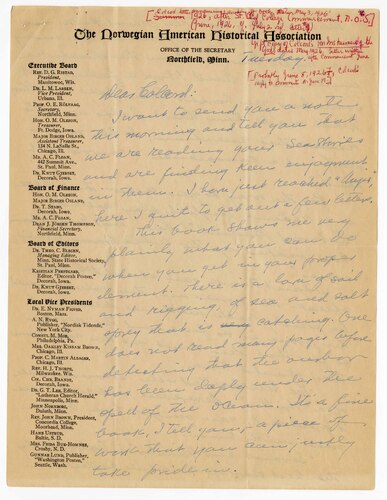 The Norwegian American Historical Association
OFFICE OF THE SECRETARY
Northfield, Minn.
Tuesday.
Executive Board
REV. D. G. RISTAD,
President,
Manitowoc, Wis.
DR. L. M. LARSON,
Vice President,
Urbana, Ill.
PROF. O. E. RÖLVAAG,
Secretary,
Northfield, Minn.
HON. O. M. OLESON,
Treasurer,
Ft. Dodge, Iowa.
MAJOR BIRGER OSLAND,
Assistant Treasurer,
134 N. LaSalle St.,
Chicago, Ill.
MR. A. C. FLOAN,
442 Summit Ave.,
St. Paul, Minn.
DR. KNUT GJERSET,
Decorah, Iowa.
Board of Finance
HON. O. M. OLESON,
MAJOR BIRGER OSLAND,
DR. T. STABO,
Decorah, Iowa.
MR. A. C. FLOAN,
DEAN J. JÖRGEN THOMPSON,
Financial Secretary,
Northfield, Minn.
Board of Editors
DR. THEO. C. BLEGEN,
Managing Editor,
Minn. State Historical Society,
St. Paul, Minn.
KRISTIAN PRESTGARD,
Editor, "Decorah Posten,"
Decorah, Iowa.
DR. KNUT GJERSET,
Decorah, Iowa.
Local Vice Presidents
DR. E. NYMAN FIGVED,
Boston, Mass.
A. N. RYGG,
Publisher, "Nordisk Tidende,"
New York City.
CONSUL M. MOE,
Philadelphia, Pa.
MRS. OAKLEY KISSAM BROWN,
Chicago, Ill.
PROF. C. MARIUS ALMAER,
Chicago, Ill.
REV. H. J. THORPE,
Milwaukee, Wis.
COL. CHR. BRANDT,
Decorah, Iowa.
DR. G. T. LEE, Editor,
"Lutheran Church Herald,"
Minneapolis, Minn.
JOHN NORAMBO,
Duluth, Minn.
REV. JOHN BROWN, President,
Concordia College,
Moorhead, Minn.
HANS USTRUD,
Baltic, S. D.
MRS. FRIDA BUE-HOMNES,
Crosby, N. D.
GUNNAR LUND, Publisher,
"Washington Posten,"
Seattle, Wash.
Dear
I want to send you a note
this morning and tell you that
we are reading your Sea Stories
and are finding keen enjoyment
in them. I have just reached
here I quit to get out a few letters.
This book shows me very
plainly what you can do
when you get in your proper
element. There is a lure of sail
and rigging, of sea and salt
spray that is catching. One
does not read many pages before
detecting that the author
has been deeply under the
spell of the Ocean. It's a fine
book, I tell you, a piece of
work that you can justly
take pride in.